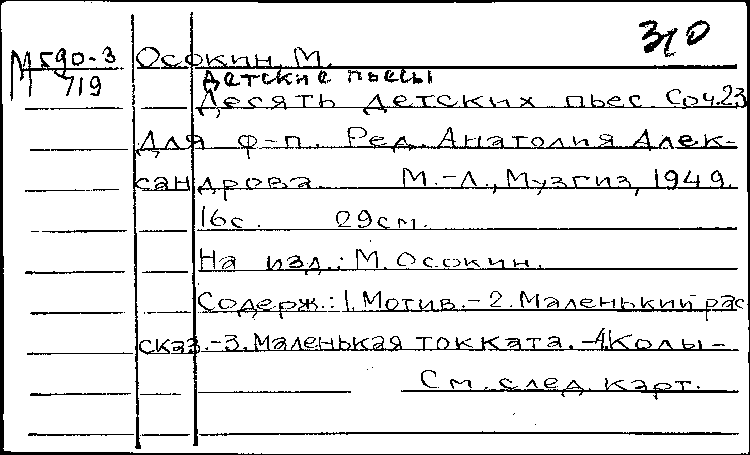 310
М 590-3 Осокин, М.
719 Детские пьесы
Десять детских пьес. Соч. 23
для ф-п. Ред. Анатолия Алек-
сандрова. М.-Л., Музгиз, 1949.
16с. 29см.
На изд.: М. Осокин.
Содерж.: 1. Мотив. - 2. Маленький рас
сказ. - 3. Маленькая токката. - 4. Колы-
См. след. карт.